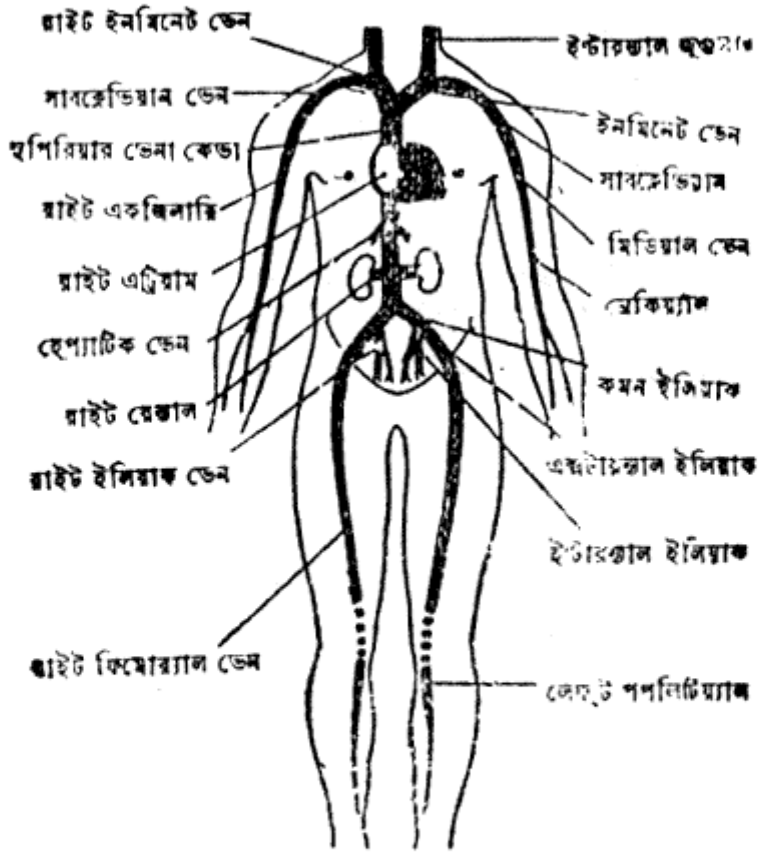 রাইট ইনমিনেট ভেন
সাবক্লেভিয়ান ভেন
সুপিরিয়ার ভেনা কেভা
রাইট একজিলারি
রাইট এট্রিয়াম
হেপ্যাটিক ভেন
রাইট রেন্যাল
রাইট ইলিয়াক ভেন
রাইট ফিমোর‍্যাল ভেন
ইণ্টারন্যাল
ইনমিনেট ভেন
সাবক্লেভিয়ান
মিডিয়াল ভেন
ব্রেকিয়্যাল
কমন ইলিয়াক
এক্সটারন্যাল ইলিয়াক
ইণ্টারন্যাল ইলিয়াক
লেফ্‌ট পপলিটিয়্যাল